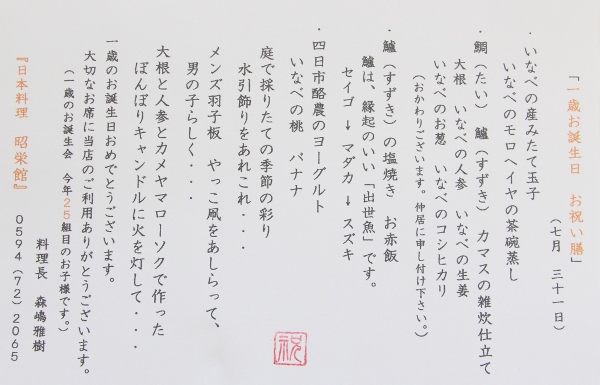 「一歳お誕生日　お祝い膳」
（七月　三十一日）
・いなべの産みたて玉子
いなべのモロヘイヤの茶碗蒸し
・鯛（たい）　鱸（すずき）　カマスの雑炊仕立て
大根　いなべの人参　いなべの生姜
いなべのお葱　いなべのコシヒカリ
（おかわりございます。仲居に申し付け下さい。）
・鱸（すずき）の塩焼き　お赤飯
鱸は、縁起のいい「出世魚」です。
セイゴ → マダカ → スズキ
・四日市酪農のヨーグルト
いなべの桃　バナナ
庭で採りたての季節の彩り
水引飾りをあれこれ・・・
メンズ羽子板　やっこ凧をあしらって、
男の子らしく・・・
大根と人参とカメヤマローソクで作った
ぼんぼりキャンドルに火を灯して・・・
一歳のお誕生日おめでとうございます。
大切なお席に当店のご利用ありがとうございます。
（一歳のお誕生会　今年２５組目のお子様です。）
料理長　森嶋雅樹
『日本料理　昭栄館』　０５９４（７２）２０６５
祝